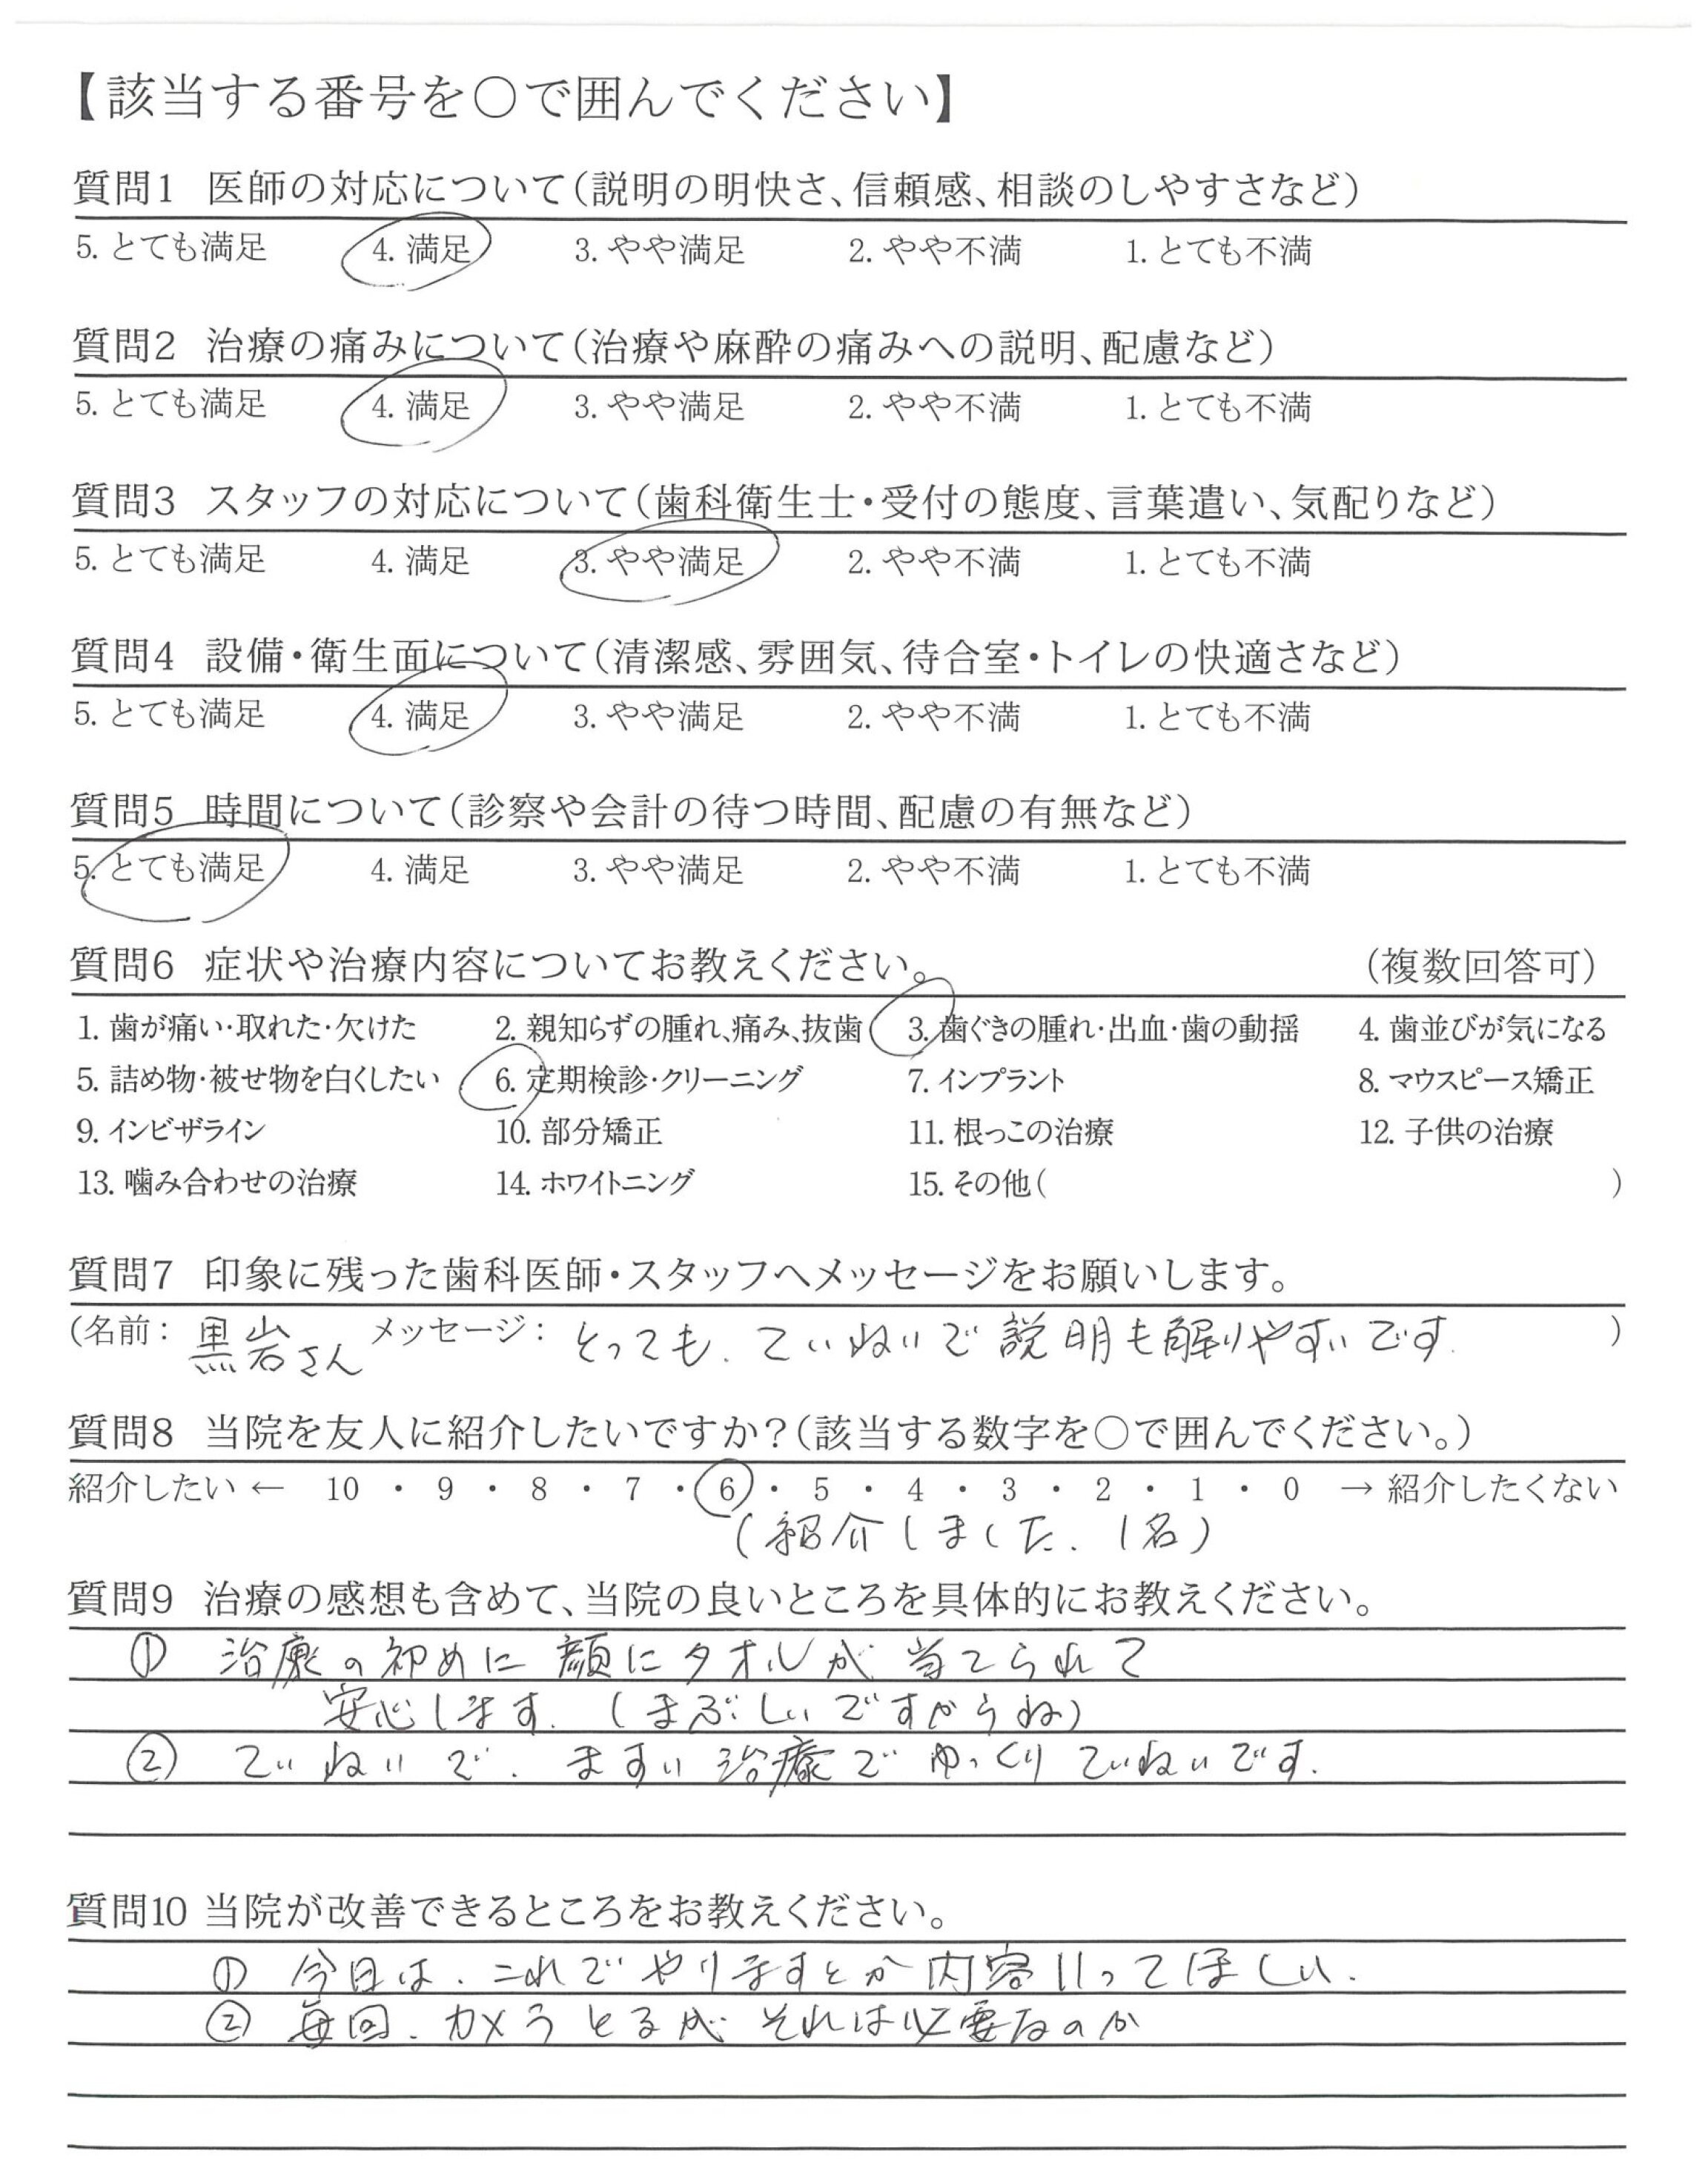 【該当する番号を〇で囲んでください】
質問1 医師の対応について(説明の明快さ、信頼感、相談のしやすさなど)
5. とても満足 4. 満足 3. やや満足 2. やや不満 1. とても不満
質問2 治療の痛みについて(治療や麻酔の痛みへの説明、配慮など)
5. とても満足 4. 満足 3. やや満足 2. やや不満 1. とても不満
質問3 スタッフの対応について(歯科衛生士・受付の態度、言葉遣い、気配りなど)
5. とても満足 4. 満足 3. やや満足 2. やや不満 1. とても不満
質問4 設備・衛生面について(清潔感、雰囲気、待合室・トイレの快適さなど)
5. とても満足 4. 満足 3. やや満足 2. やや不満 1. とても不満
質問5 時間について(診察や会計の待つ時間、配慮の有無など)
5. とても満足 4. 満足 3. やや満足 2. やや不満 1. とても不満
質問6 症状や治療内容についてお教えください。 (複数回答可)
1. 歯が痛い・取れた・欠けた 2. 親知らずの腫れ、痛み、抜歯 3. 歯ぐきの腫れ・出血・歯の動揺 4. 歯並びが気になる
5. 詰め物・被せ物を白くしたい 6. 定期検診・クリーニング 7. インプラント 8. マウスピース矯正
9. インビザライン 10. 部分矯正 11. 根っこの治療 12. 子供の治療
13. 噛み合わせの治療 14. ホワイトニング 15. その他( )
質問7 印象に残った歯科医師・スタッフへメッセージをお願いします。
(名前: 黒岩さん メッセージ: とっても、ていねいで説明も解りやすいです )
質問8 当院を友人に紹介したいですか?(該当する数字を〇で囲んでください。)
紹介したい ← 10 ・ 9 ・ 8 ・ 7 ・ 6 ・ 5 ・ 4 ・ 3 ・ 2 ・ 1 ・ 0 → 紹介したくない
(紹介しました. 1名)
質問9 治療の感想も含めて、当院の良いところを具体的にお教えください。
① 治療の初めに顔にタオルが当てられて
安心します. (まぶしいですからね)
② ていねいで. ますい治療でゆっくりていねいです.
質問10 当院が改善できるところをお教えください。
① 今日は、これでやりますとか内容いってほしい.
② 毎回、カメラとるがそれは必要なのか